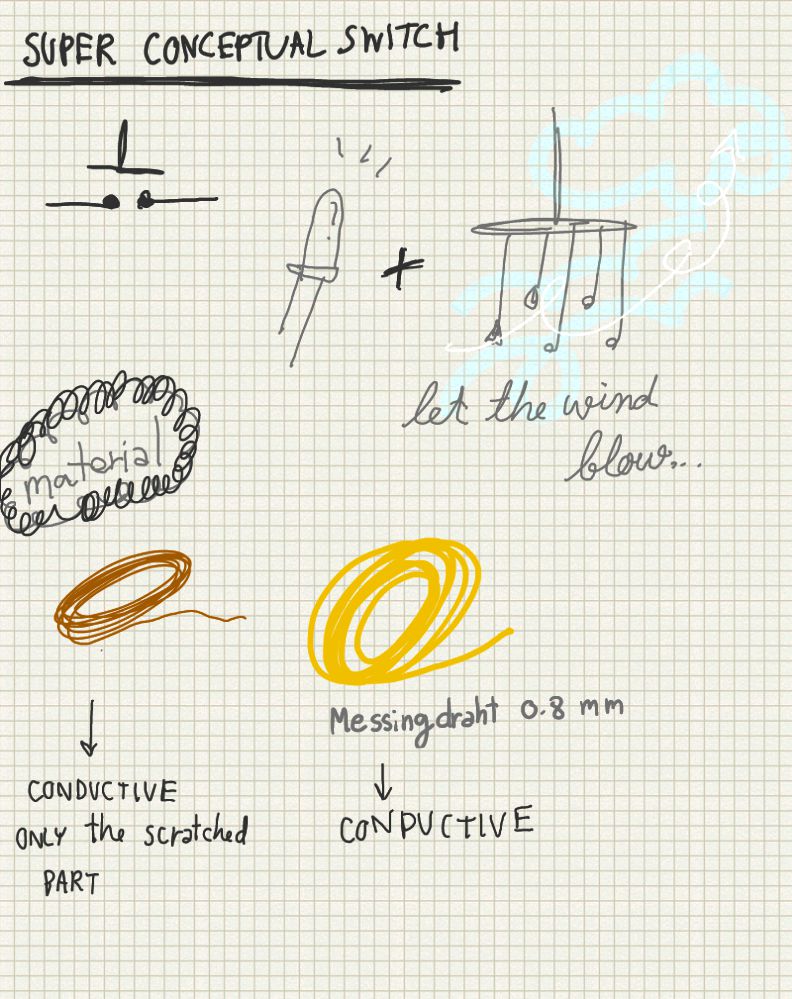 SUPER CONCEPTUAL SWITCH
?
+
let the wind
blow...
material
Messingdraht 0.8 mm
CONDUCTIVE
ONLY the scratched
PART
CONDUCTIVE